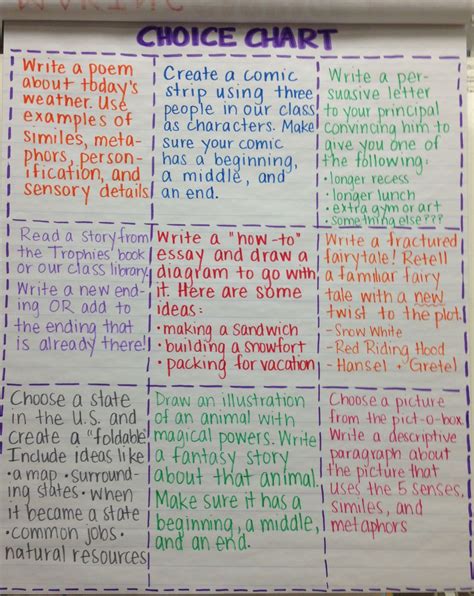 CHOICE CHART
Write a poem
about today's
weather. Use
examples of
similes, meta-
phors, person-
ification, and
sensory details
Create a comic
strip using three
people in our class
as characters. Make
sure your comic
has a beginning,
a middle, and
an end.
Write a per-
suasive letter
to your principal
convincing him to
give you one of
the following:
• longer recess
• longer lunch
• extra gym or art
• something else???
Read a story from
the Trophies book
or our class library.
Write a new end-
ing OR add to
the ending that
is already there!
Write a "how-to"
essay and draw a
diagram to go with
it. Here are some
ideas:
• making a sandwich
• building a snowfort
• packing for vacation
Write a fractured
fairytale! Retell
a familiar fairy
tale with a new
twist to the plot.
- Snow White
- Red Riding Hood
- Hansel + Gretel
Choose a state
in the U.S. and
create a "foldable"
Include ideas like
• a map • surround-
ing states • when
it became a state
• common jobs •
natural resources
Draw an illustration
of an animal with
magical powers. Write
a fantasy story
about that animal.
Make sure it has a
beginning, a middle,
and an end.
Choose a picture
from the pict-o-box.
Write a descriptive
paragraph about
the picture that
uses the 5 senses,
similes, and
metaphors